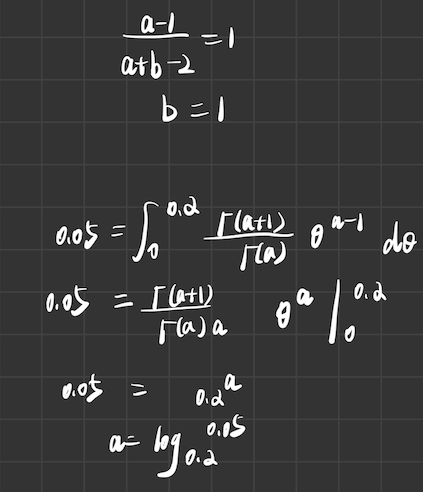 \frac{a-1}{a+b-2} = 1
b = 1
0.05 = \int_0^{0.2} \frac{\Gamma(a+1)}{\Gamma(a)} \theta^{a-1} d\theta
0.05 = \frac{\Gamma(a+1)}{\Gamma(a) a} \theta^a \Big|_0^{0.2}
0.05 = 0.2^a
a = \log_{0.2} 0.05